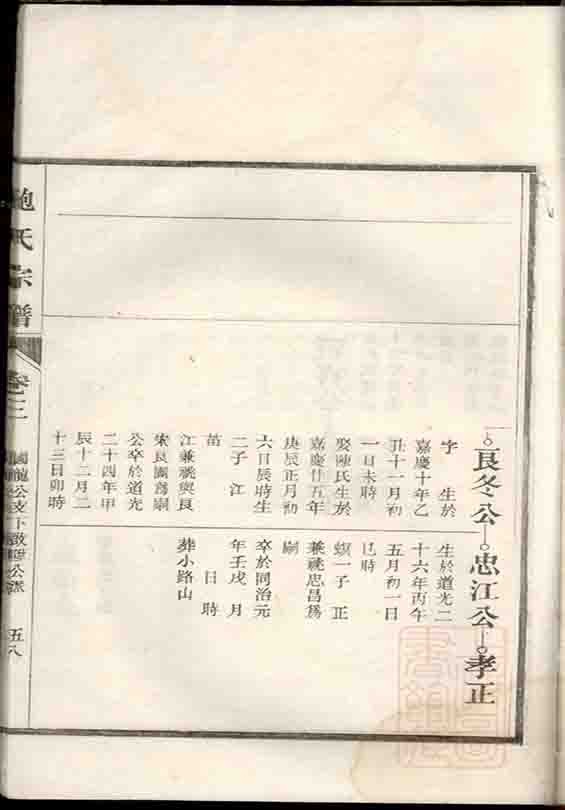 良冬公 忠江公 孝正
字 生於
嘉慶十年乙
丑十一月初
一日未時
娶陳氏生於
嘉慶廿五年
庚辰正月初
六日辰時生
二子 江
苗
江兼祧與良
良國爲嗣
公卒於道光
二十四年甲
辰十二月二
十三日卯時
生於道光二
十六年丙午
五月初一日
巳時
螟一子 正
兼祧忠昌爲
嗣
卒於同治元
年壬戌 月
日 時
葬小路山
鮑氏宗譜
卷三
國龍公支下啟公派
五八